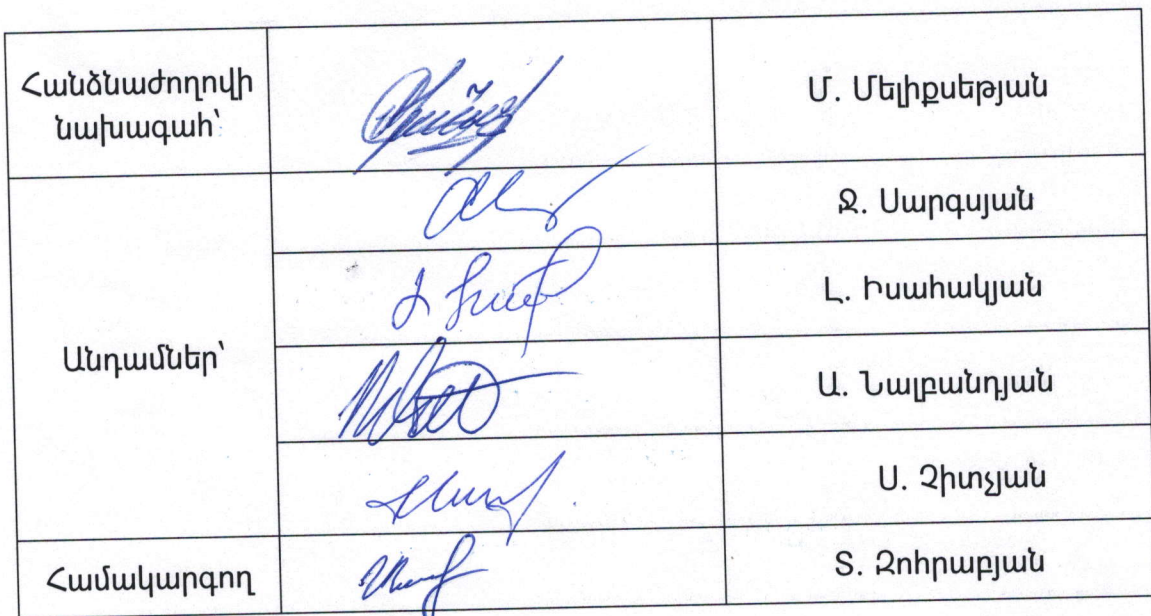 Հանձնաժողովի
նախագահ՝
Մ. Մելիքսեթյան
Անդամներ՝
Ջ. Սարգսյան
Լ. Իսահակյան
Ա. Նալբանդյան
Ս. Չիտչյան
Համակարգող
Տ. Զոհրաբյան